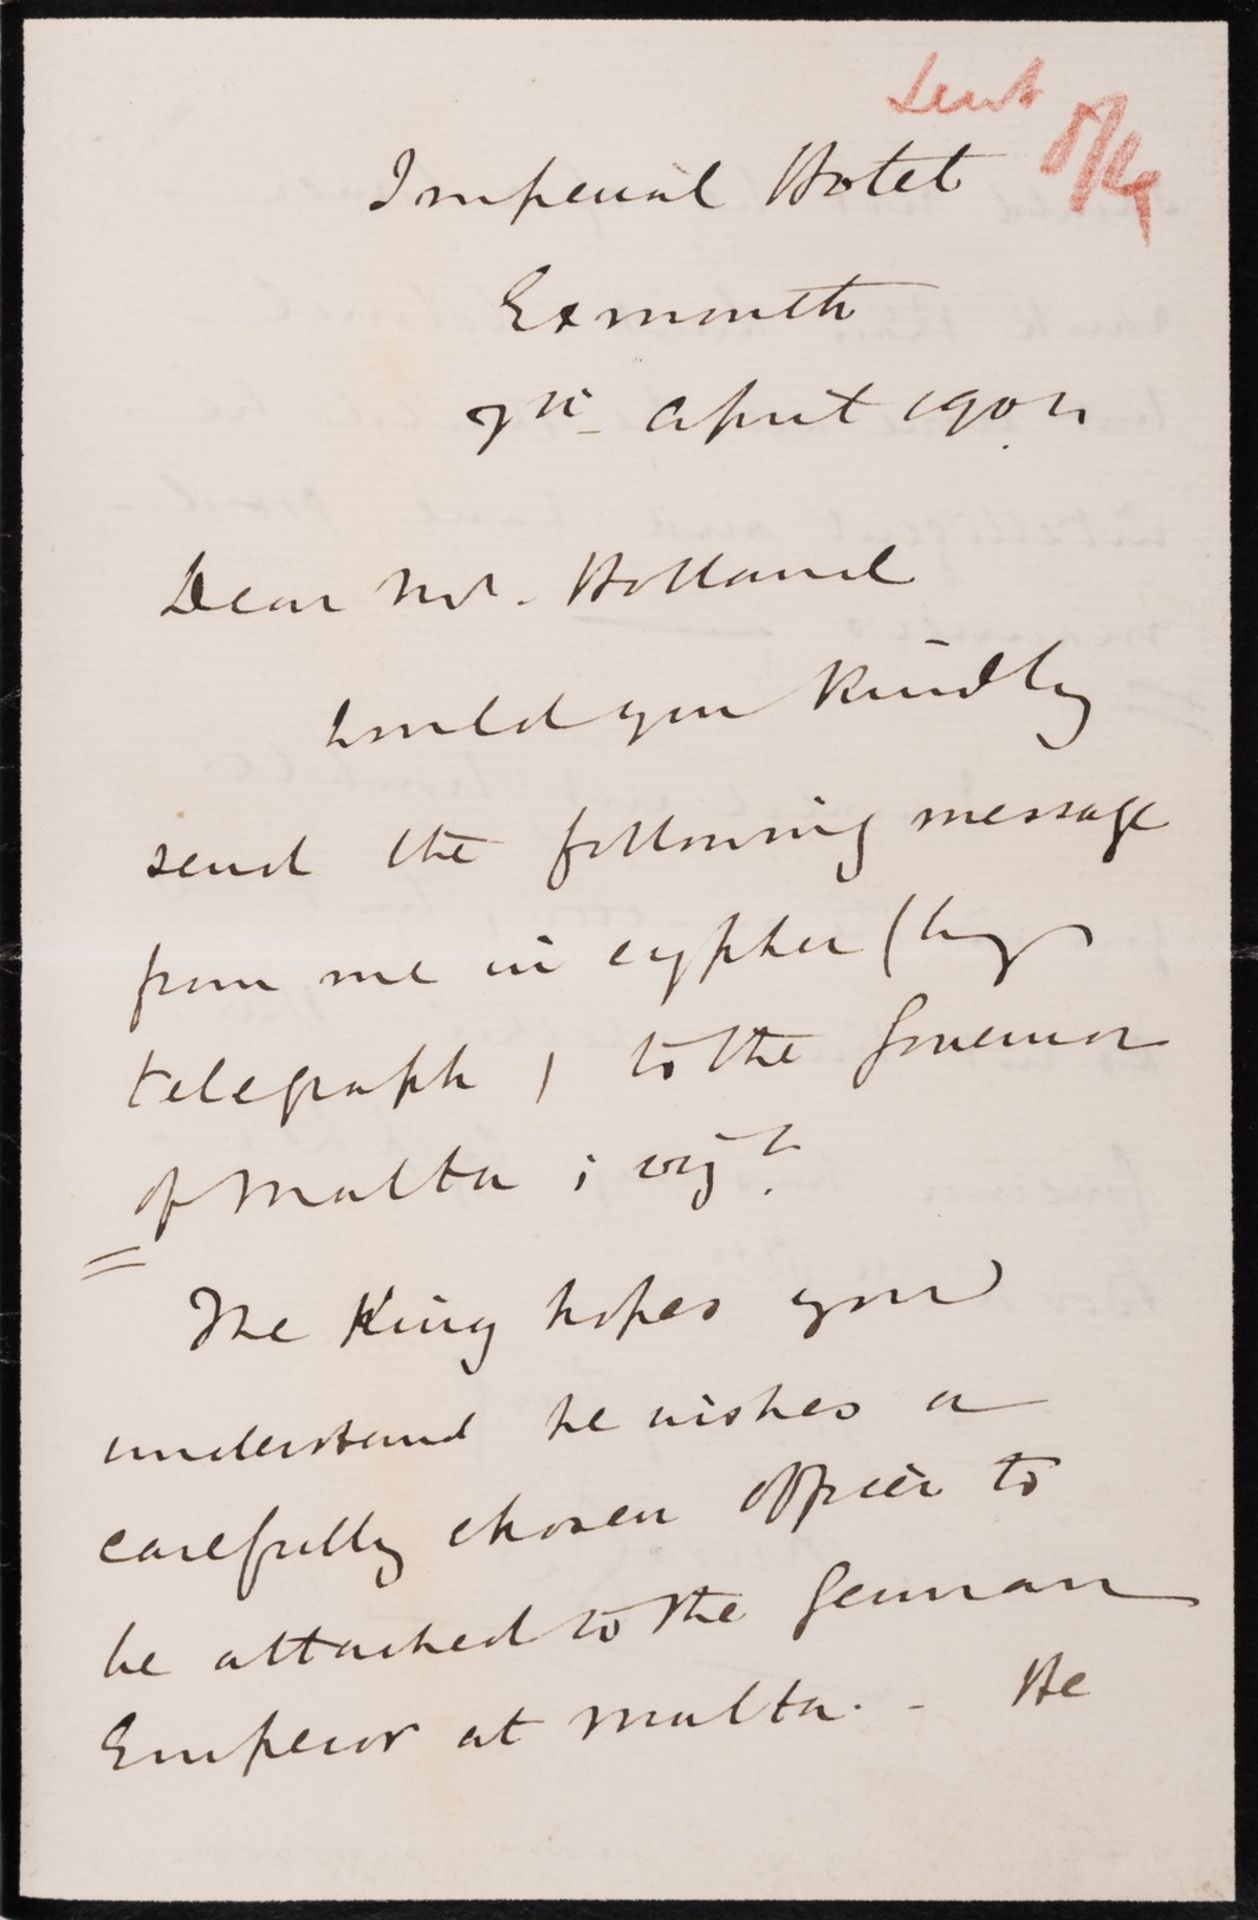 Sent
8/4
Imperial Hotel
Exmouth
7th April 1904
Dear Mr. Holland
Would you kindly
send the following message
from me in cypher (by
telegraph) to the Governor
of Malta ; viz?
The King hopes you
understand he wishes a
carefully chosen officer to
be attached to the German
Emperor at Malta. - He